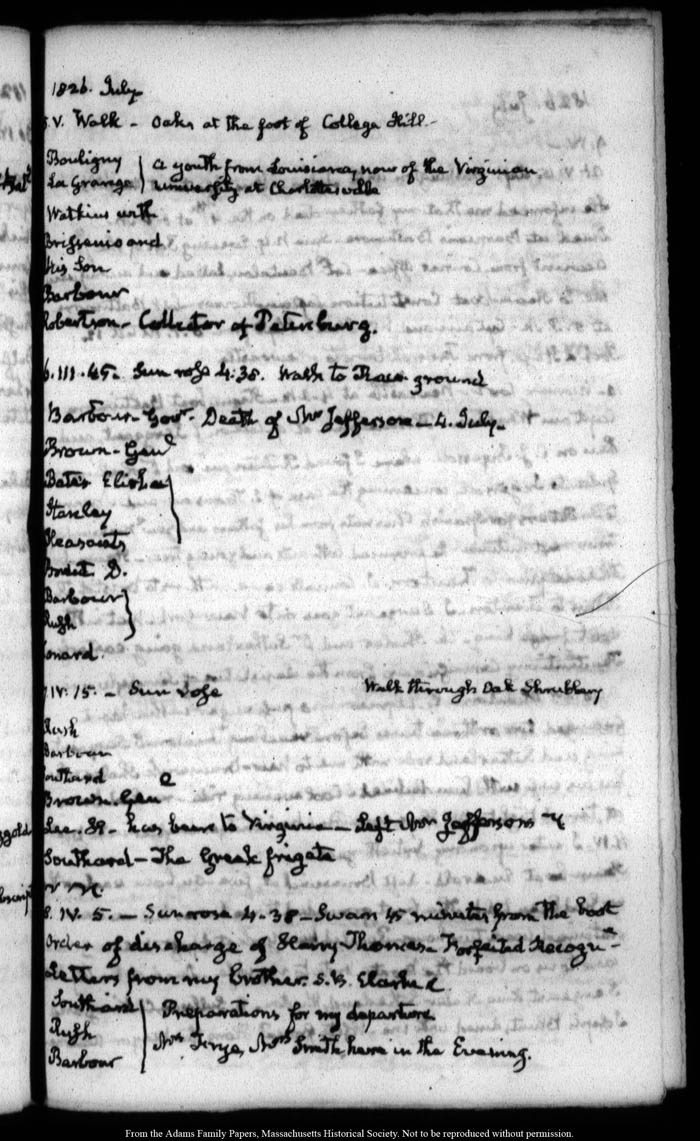 1826. July
5. V. Walk - Oaks at the foot of College Hill -
Bouligny
La Grange
a youth from Louisiana, now of the Virginian
University at Charlottesville
Watkins with
and
his Son
Barbour
Robertson - Collector of Petersburg.
6. III. 45. Sun rose 4.38. Walk to Race ground
Barbour - Gov.r - Death of Mr Jefferson - 4. July -
Brown - Gen.l
Bates Elisha
Stanley
Pleasants
D.
Barbour
Rush
7. IV. 15. - Sun rose Walk through Oak Shrubbery
Rush
Barbour
Southard
Brown. Gen.l
Lee. - has been to Virginia - Left Mr Jefferson
Southard - The Greek frigate
8. IV. 5. - Sun rose 4.38 - Swam 45 minutes from the boat
Order of discharge of Henry Thomas - Forfeited Recogn.e -
Letters from my brother. S. B. Clarke
Southard
Rush
Barbour
Preparations for my departure
Mrs Frye, Mrs Smith here in the Evening.
From the Adams Family Papers, Massachusetts Historical Society. Not to be reproduced without permission.